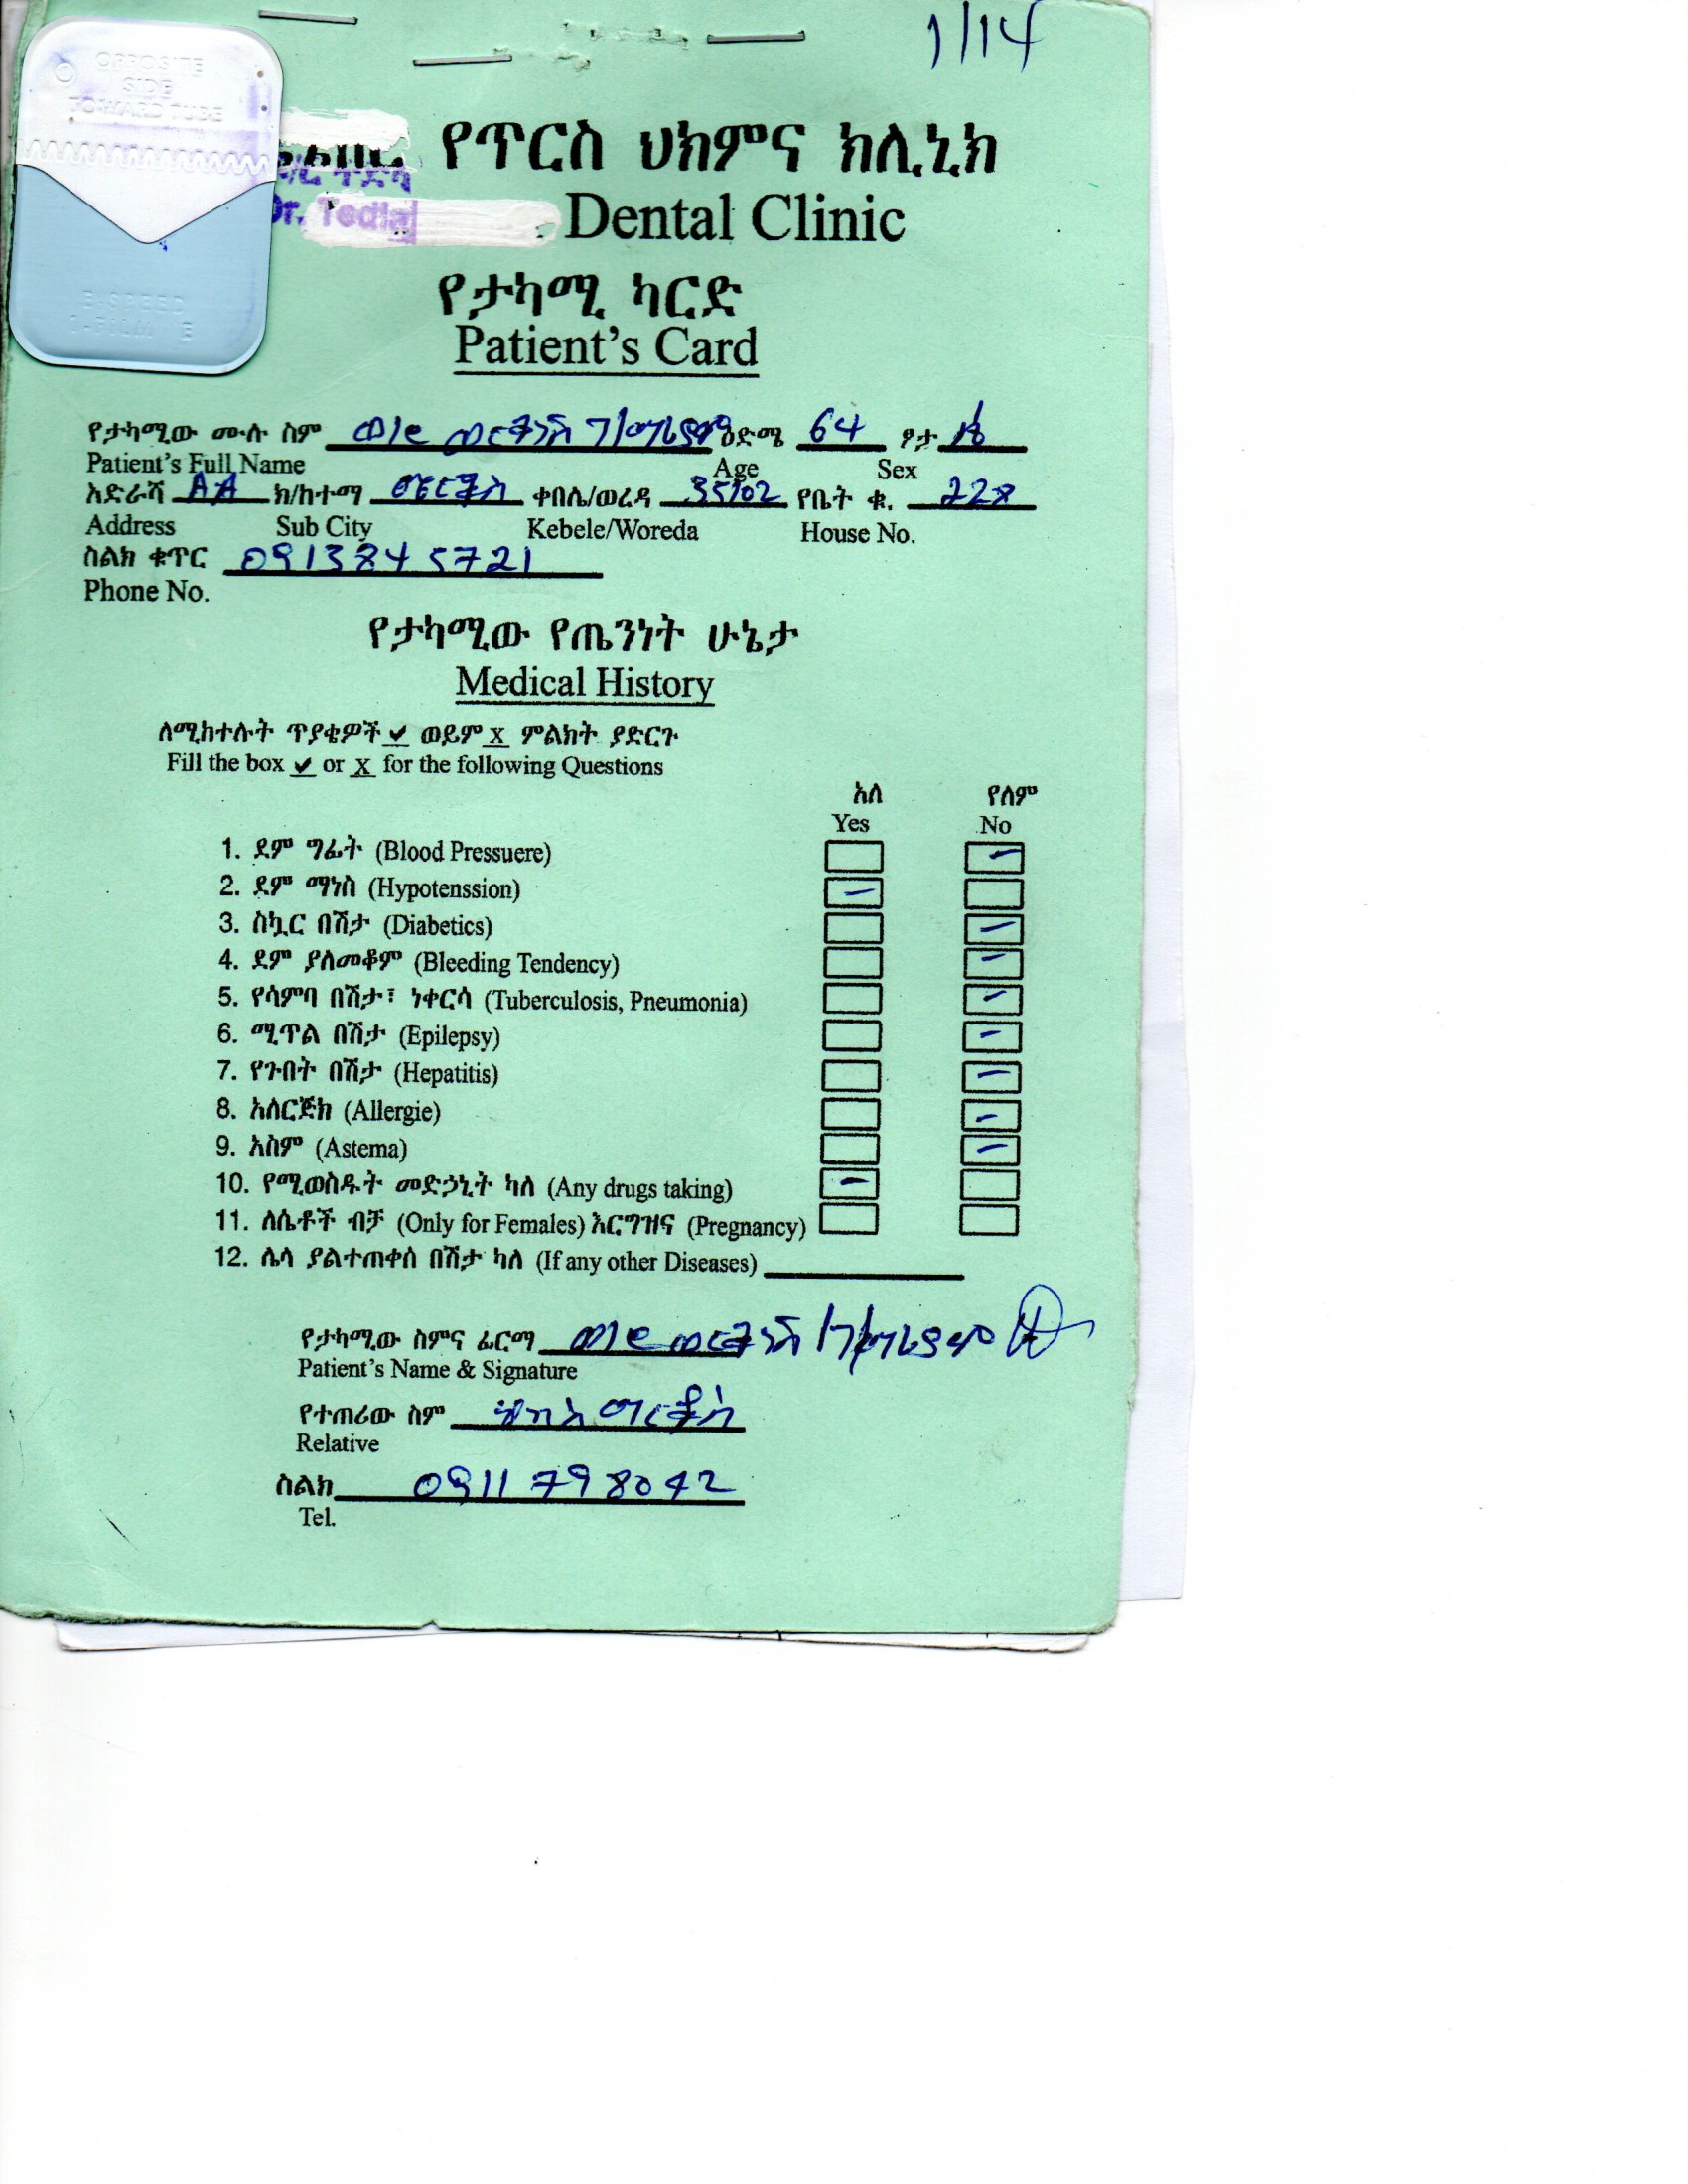 1/14
OPPOSITE
SIDE
TOWARD TUBE
E-SPEED
የጥርስ ህክምና ክሊኒክ
Dr. Tedla Dental Clinic
የታካሚ ካርድ
Patient's Card
የታካሚው ሙሉ ስም ወ/ሮ ዕድሜ 64 ፆታ
Patient's Full Name Age Sex
አድራሻ AA ክ/ከተማ ቀበሌ/ወረዳ 35/02 የቤት ቁ. 228
Address Sub City Kebele/Woreda House No.
ስልክ ቁጥር 0913845721
Phone No.
የታካሚው የጤንነት ሁኔታ
Medical History
ለሚከተሉት ጥያቄዎች ✔ ወይም X ምልክት ያድርጉ
Fill the box ✔ or X for the following Questions
አለ የለም
Yes No
1. ደም ግፊት (Blood Pressuere)
2. ደም ማነስ (Hypotenssion)
3. ስኳር በሽታ (Diabetics)
4. ደም ያለመቆም (Bleeding Tendency)
5. የሳምባ በሽታ፣ ነቀርሳ (Tuberculosis, Pneumonia)
6. ሚጥል በሽታ (Epilepsy)
7. የጉበት በሽታ (Hepatitis)
8. አለርጅክ (Allergie)
9. አስም (Astema)
10. የሚወስዱት መድኃኒት ካለ (Any drugs taking)
11. ለሴቶች ብቻ (Only for Females) እርግዝና (Pregnancy)
12. ሌላ ያልተጠቀሰ በሽታ ካለ (If any other Diseases)
የታካሚው ስምና ፊርማ ወ/ሮ
Patient's Name & Signature
የተጠሪው ስም
Relative
ስልክ 0911798042
Tel.